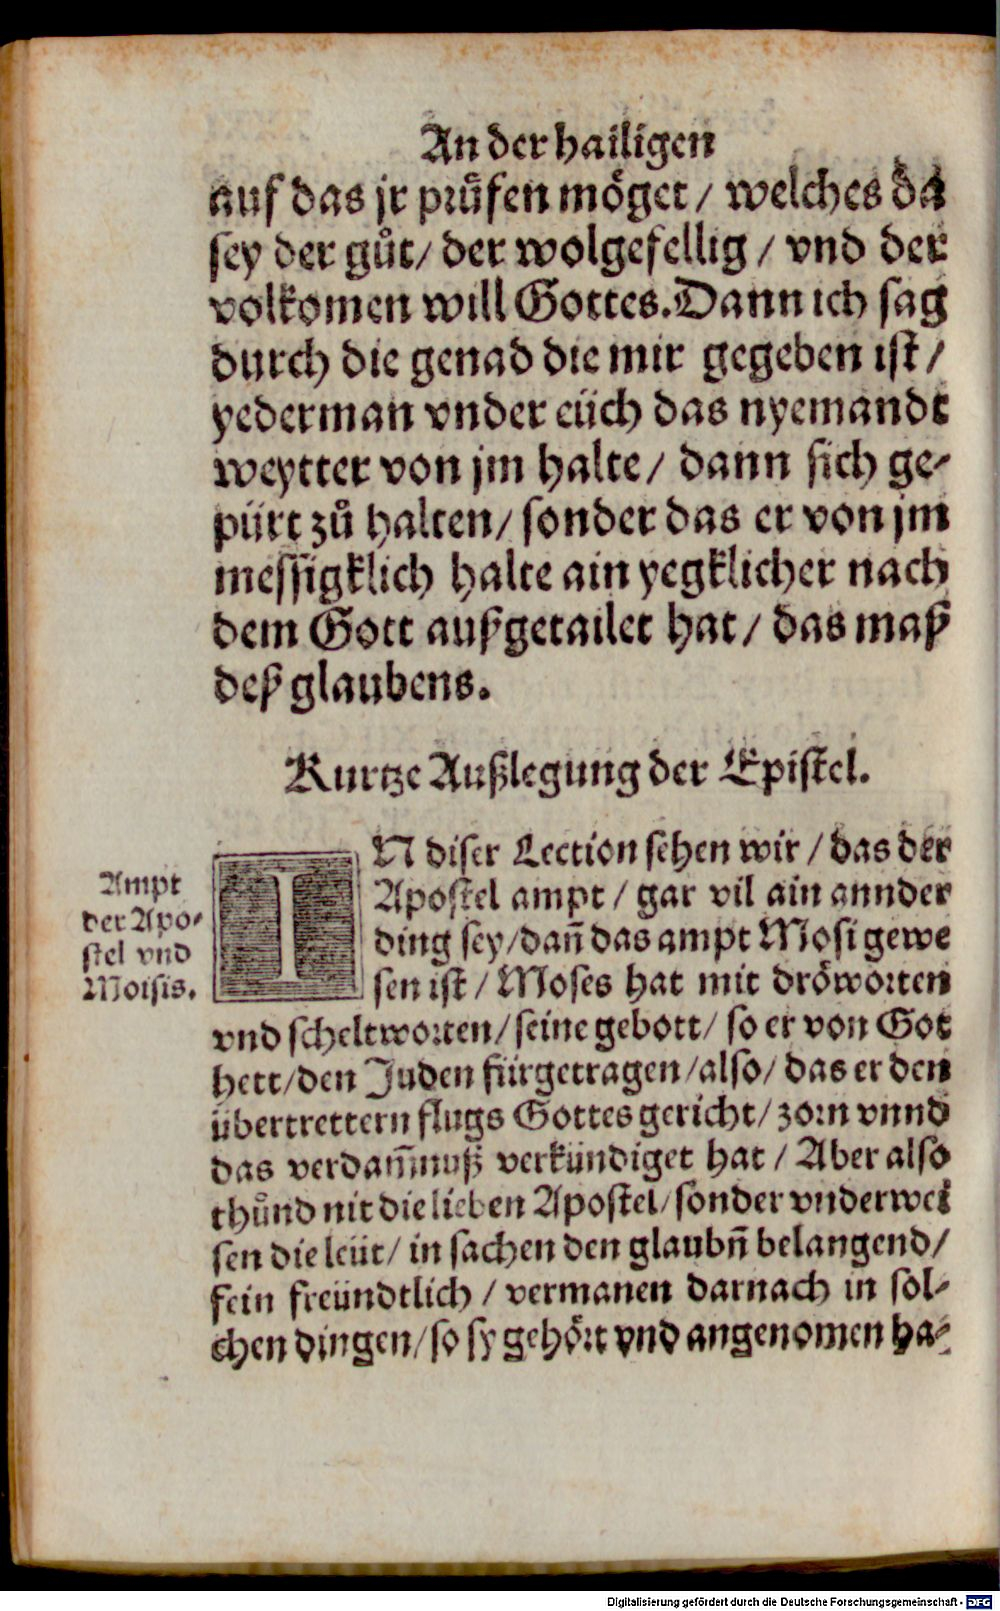 An der hailigen
auf das jr pruͤfen moͤget / welches da
sey der guͦt / der wolgefellig / vnd der
volkomen will Gottes. Dann ich sag
durch die genad die mir gegeben ist /
yederman vnder eüch das nyemandt
weytter von jm halte / dann sich ge-
pürt zuͦ halten / sonder das er von jm
messigklich halte ain yegklicher nach
dem Gott außgetailet hat / das maß
deß glaubens.
Kurtze Außlegung der Epistel.
Ampt
der Apo-
stel vnd
Moisis.
IN diser Lection sehen wir / das der
Apostel ampt / gar vil ain annder
ding sey / dañ das ampt Mosi gewe
sen ist / Moses hat mit droͤworten
vnd scheltworten / seine gebott / so er von Got
hett / den Juden fürgetragen / also / das er den
übertrettern flugs Gottes gericht / zorn vnnd
das verdam̃nuß verkündiget hat / Aber also
thuͦnd nit die lieben Apostel / sonder vnderwei
sen die leüt / in sachen den glaubñ belangend /
fein freündtlich / vermanen darnach in sol-
chen dingen / so sy gehoͤrt vnd angenomen ha-
Digitalisierung gefördert durch die Deutsche Forschungsgemeinschaft - DFG